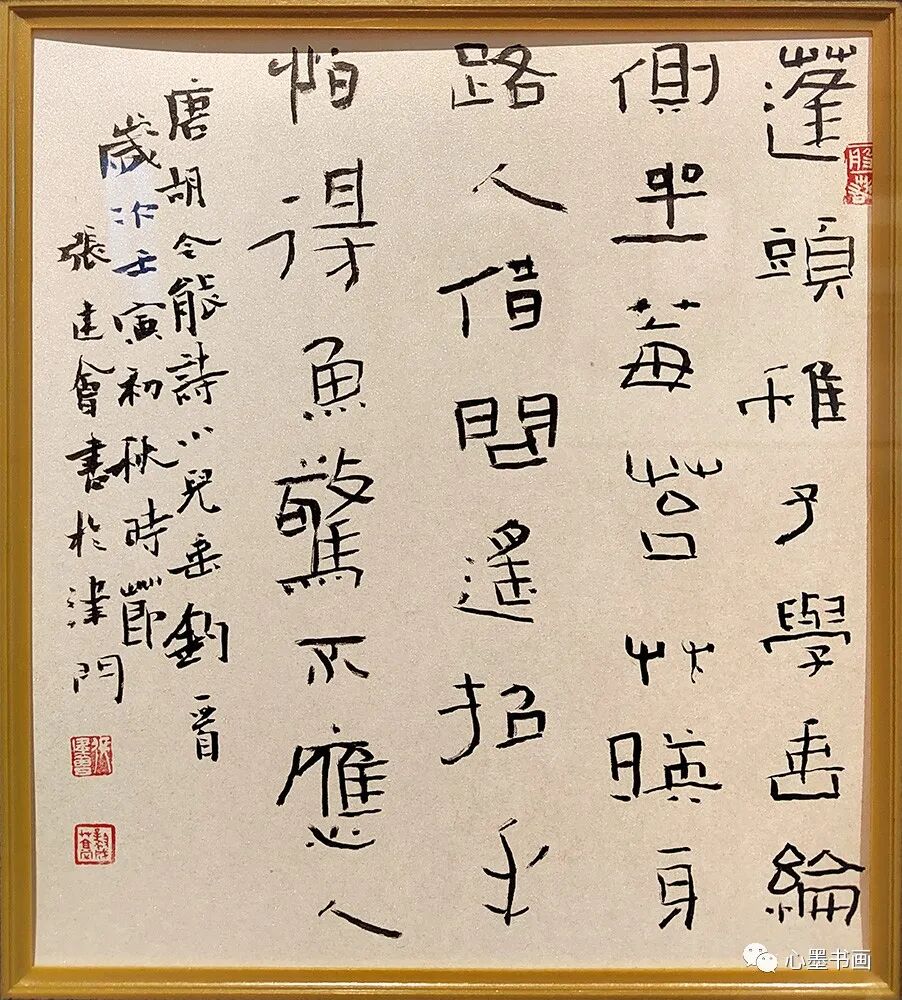 蓬頭稚子學垂綸
側坐莓苔艸暎身
路人借問遙招手
怕得魚驚不應人
唐胡令能詩小兒垂釣一首
歲次壬寅初秋時節
張建會書於津門
張建會
心墨书画